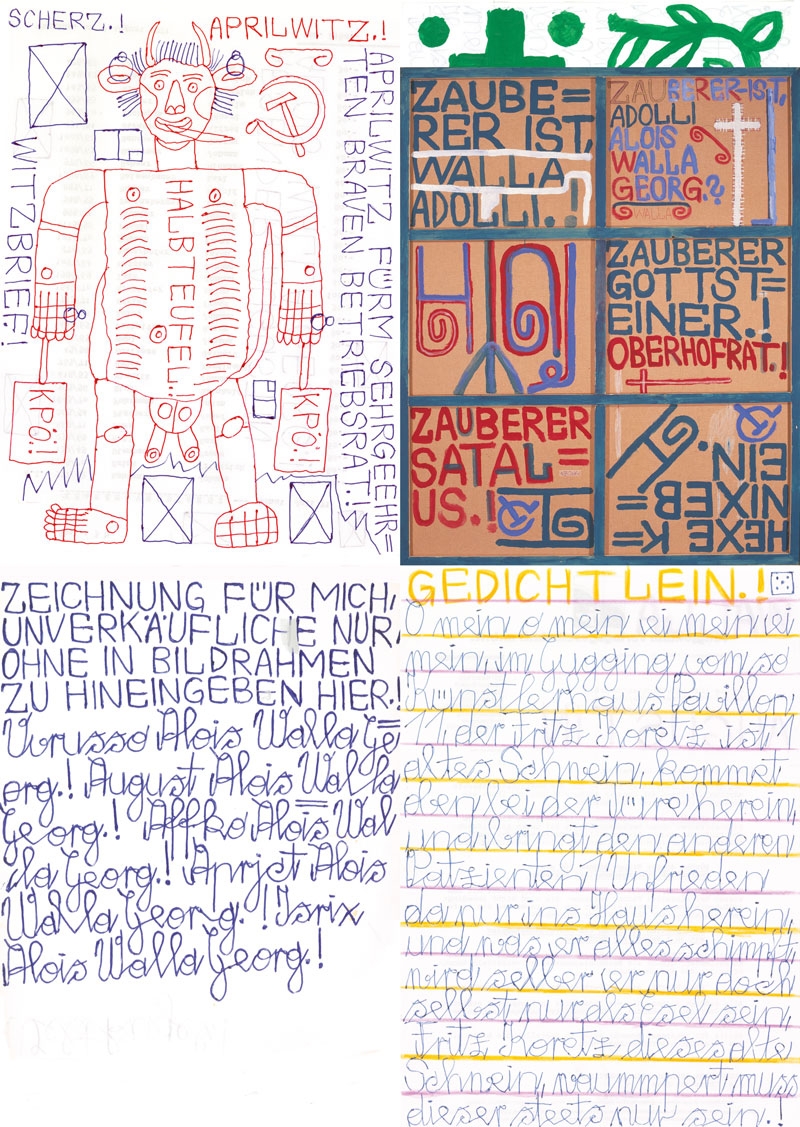 SCHERZ.!
APRILWITZ.!
WITZBRIEF.!
HALBTEUFEL.
APRILWITZ FÜRM SEHRGEEHR=
TEN BRAVEN BETRIEBSRAT.!
KPÖ.!
KPÖ.!
ZAUBE=
RER IST,
WALLA
ADOLLI.!
ZAUBERER-IST,
ADOLLI
ALOIS
WALLA
GEORG.?
WALLA
ZAUBERER
GOTTST=
EINER.!
OBERHOFRAT.!
ZAUBERER
SATAL=
US.!
HEXE K=
NIXEB=
EIN.
ZEICHNUNG FÜR MICH,
UNVERKÄUFLICHE NUR,
OHNE IN BILDRAHMEN
ZU HINEINGEBEN HIER.!
Vorusso Alois Walla Ge=
org.! August Alois Walla
Georg.! Affko Alois Wal=
la Georg.! Aprjct Alois
Walla Georg.! Isrix
Alois Walla Georg.!
GEDICHTLEIN.!
O mein o mein ei mein ei
mein, im Gugging vom so
Künstlerhaus Pavillon
11, der Fritz Koretz ist 1
altes Schwein, kommet
den bei der Türe herein,
und bringt den anderen
Patzienten 1 Unfrieden
da nur ins Haus herein,
und was er alles schimpft,
wird selber er nur doch
selbst nur als Esel sein,
Fritz Koretz dieses alte
Schwein, vaummpert muss
dieser steets nur sein.!